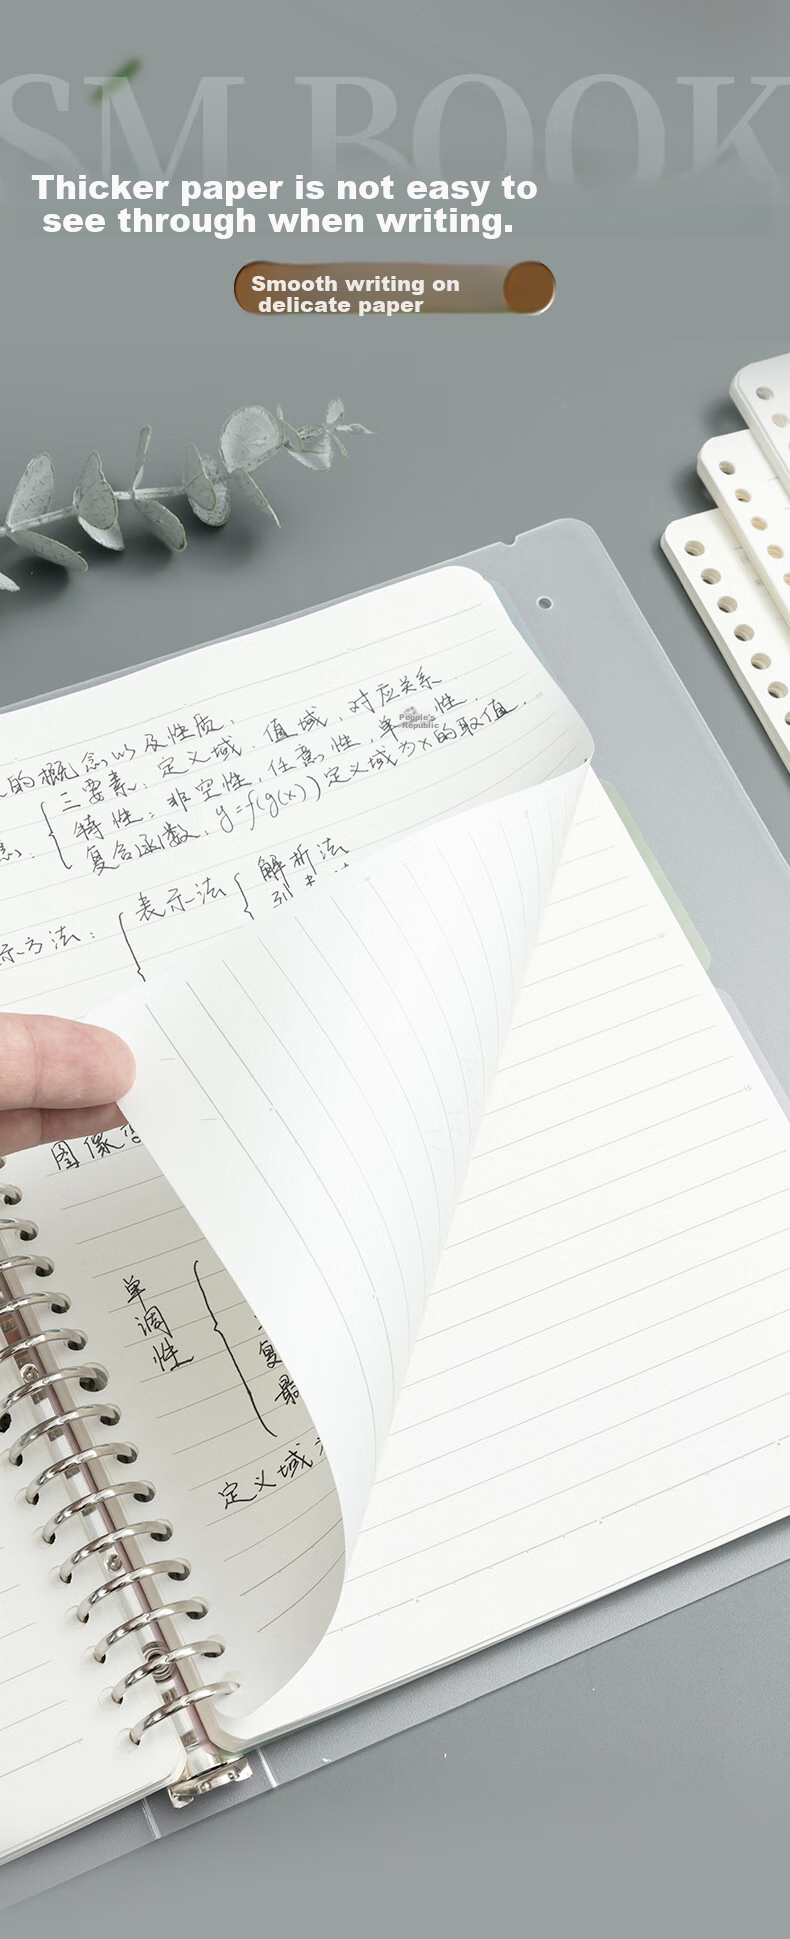 SM BOOK
Thicker paper is not easy to
see through when writing.
Smooth writing on
delicate paper
的概念以及性质.
三要素. 定义域. 值域. 对应关系.
People's
Republic
特性: 非空性, 任意性, 单 性.
复合函数. y=f(g(x)) 定义域为x的取值.
示方法: 表示法 解析法
图像
单调性
复
最
定义域